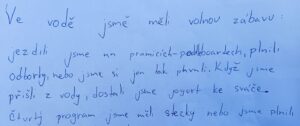 Ve vodě jsmě měli volnou zábavu:
jezdili jsme na pramicích - paddleboardech, plnili
odborky, nebo jsme si jen tak plavali. Když jsme
přišli z vody, dostali jsme jogurt ke svače.
Čtvrtý program jsme měli stezky nebo jsme plnili